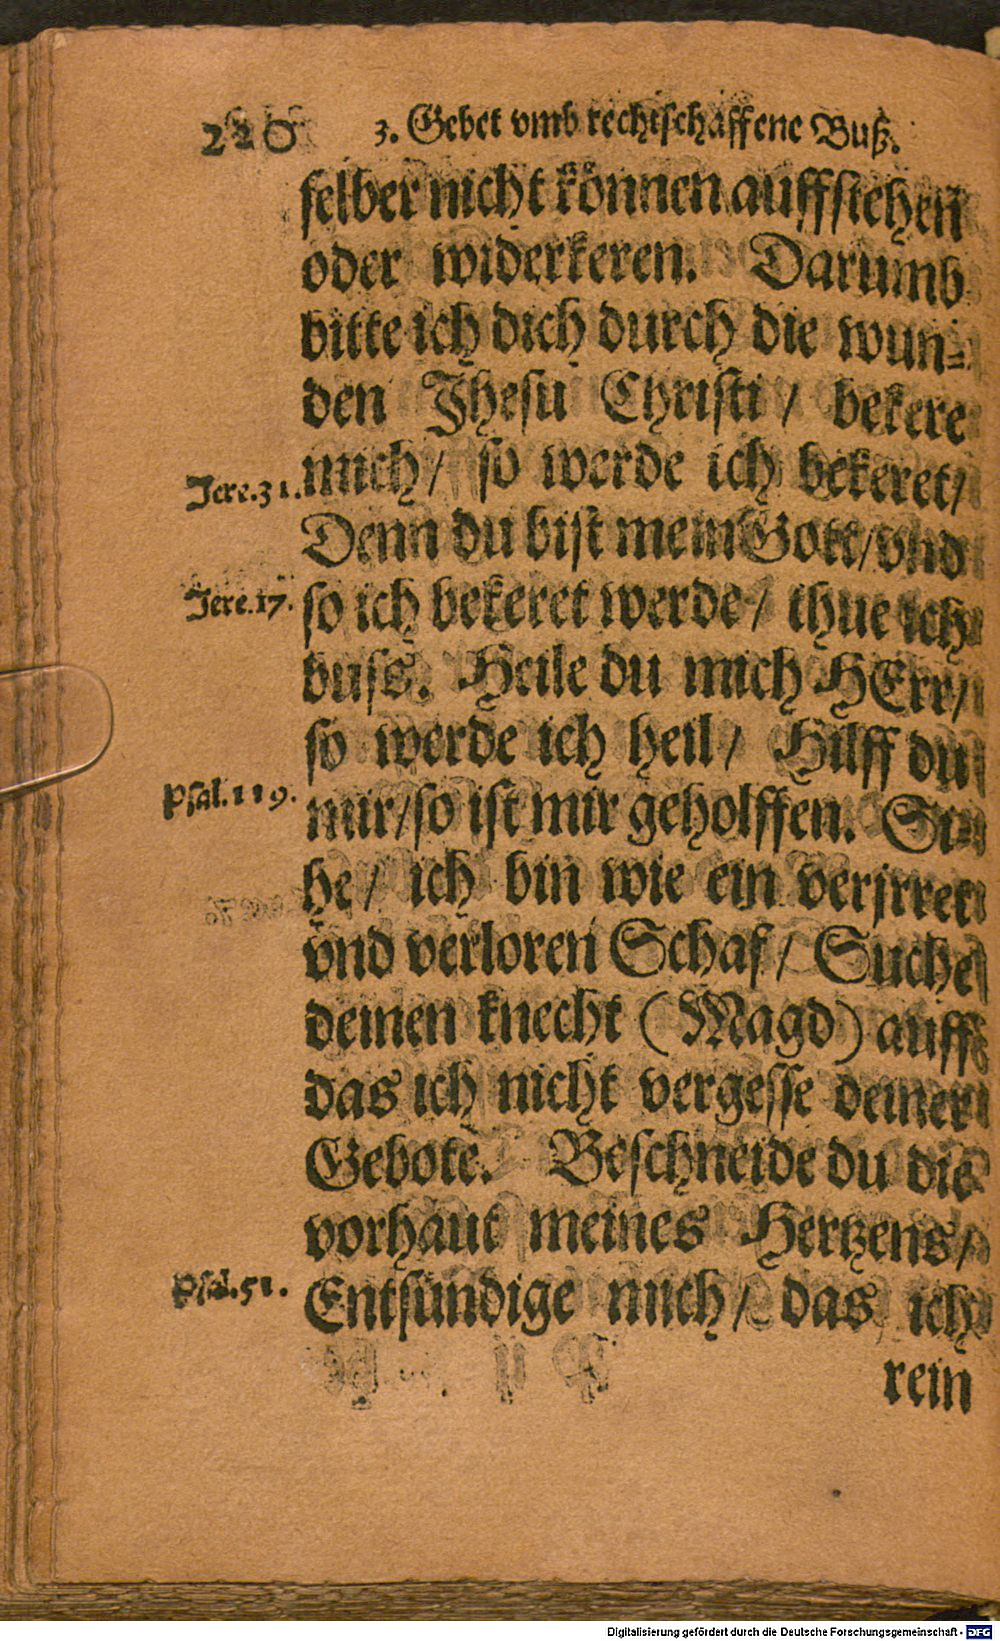 220 3. Gebet vmb rechtschaffene Buß.
selber nicht können auffstehen
oder widerkeren. Darumb
bitte ich dich durch die wun-
den Jhesu Christi / bekere
Jere.31. mich / so werde ich bekeret /
Denn du bist mein Gott / vnd
Jere.17. so ich bekeret werde / thue ich
buss. Heile du mich HErr /
so werde ich heil / Hilff du
Psal.119. mir / so ist mir geholffen. Si-
he / ich bin wie ein verjrret
vnd verloren Schaf / Suche
deinen knecht (Magd) auff
das ich nicht vergesse deiner
Gebote. Beschneide du die
vorhaut meines Hertzens /
Psal.51. Entsündige mich / das ich
rein
Digitalisierung gefördert durch die Deutsche Forschungsgemeinschaft - DFG